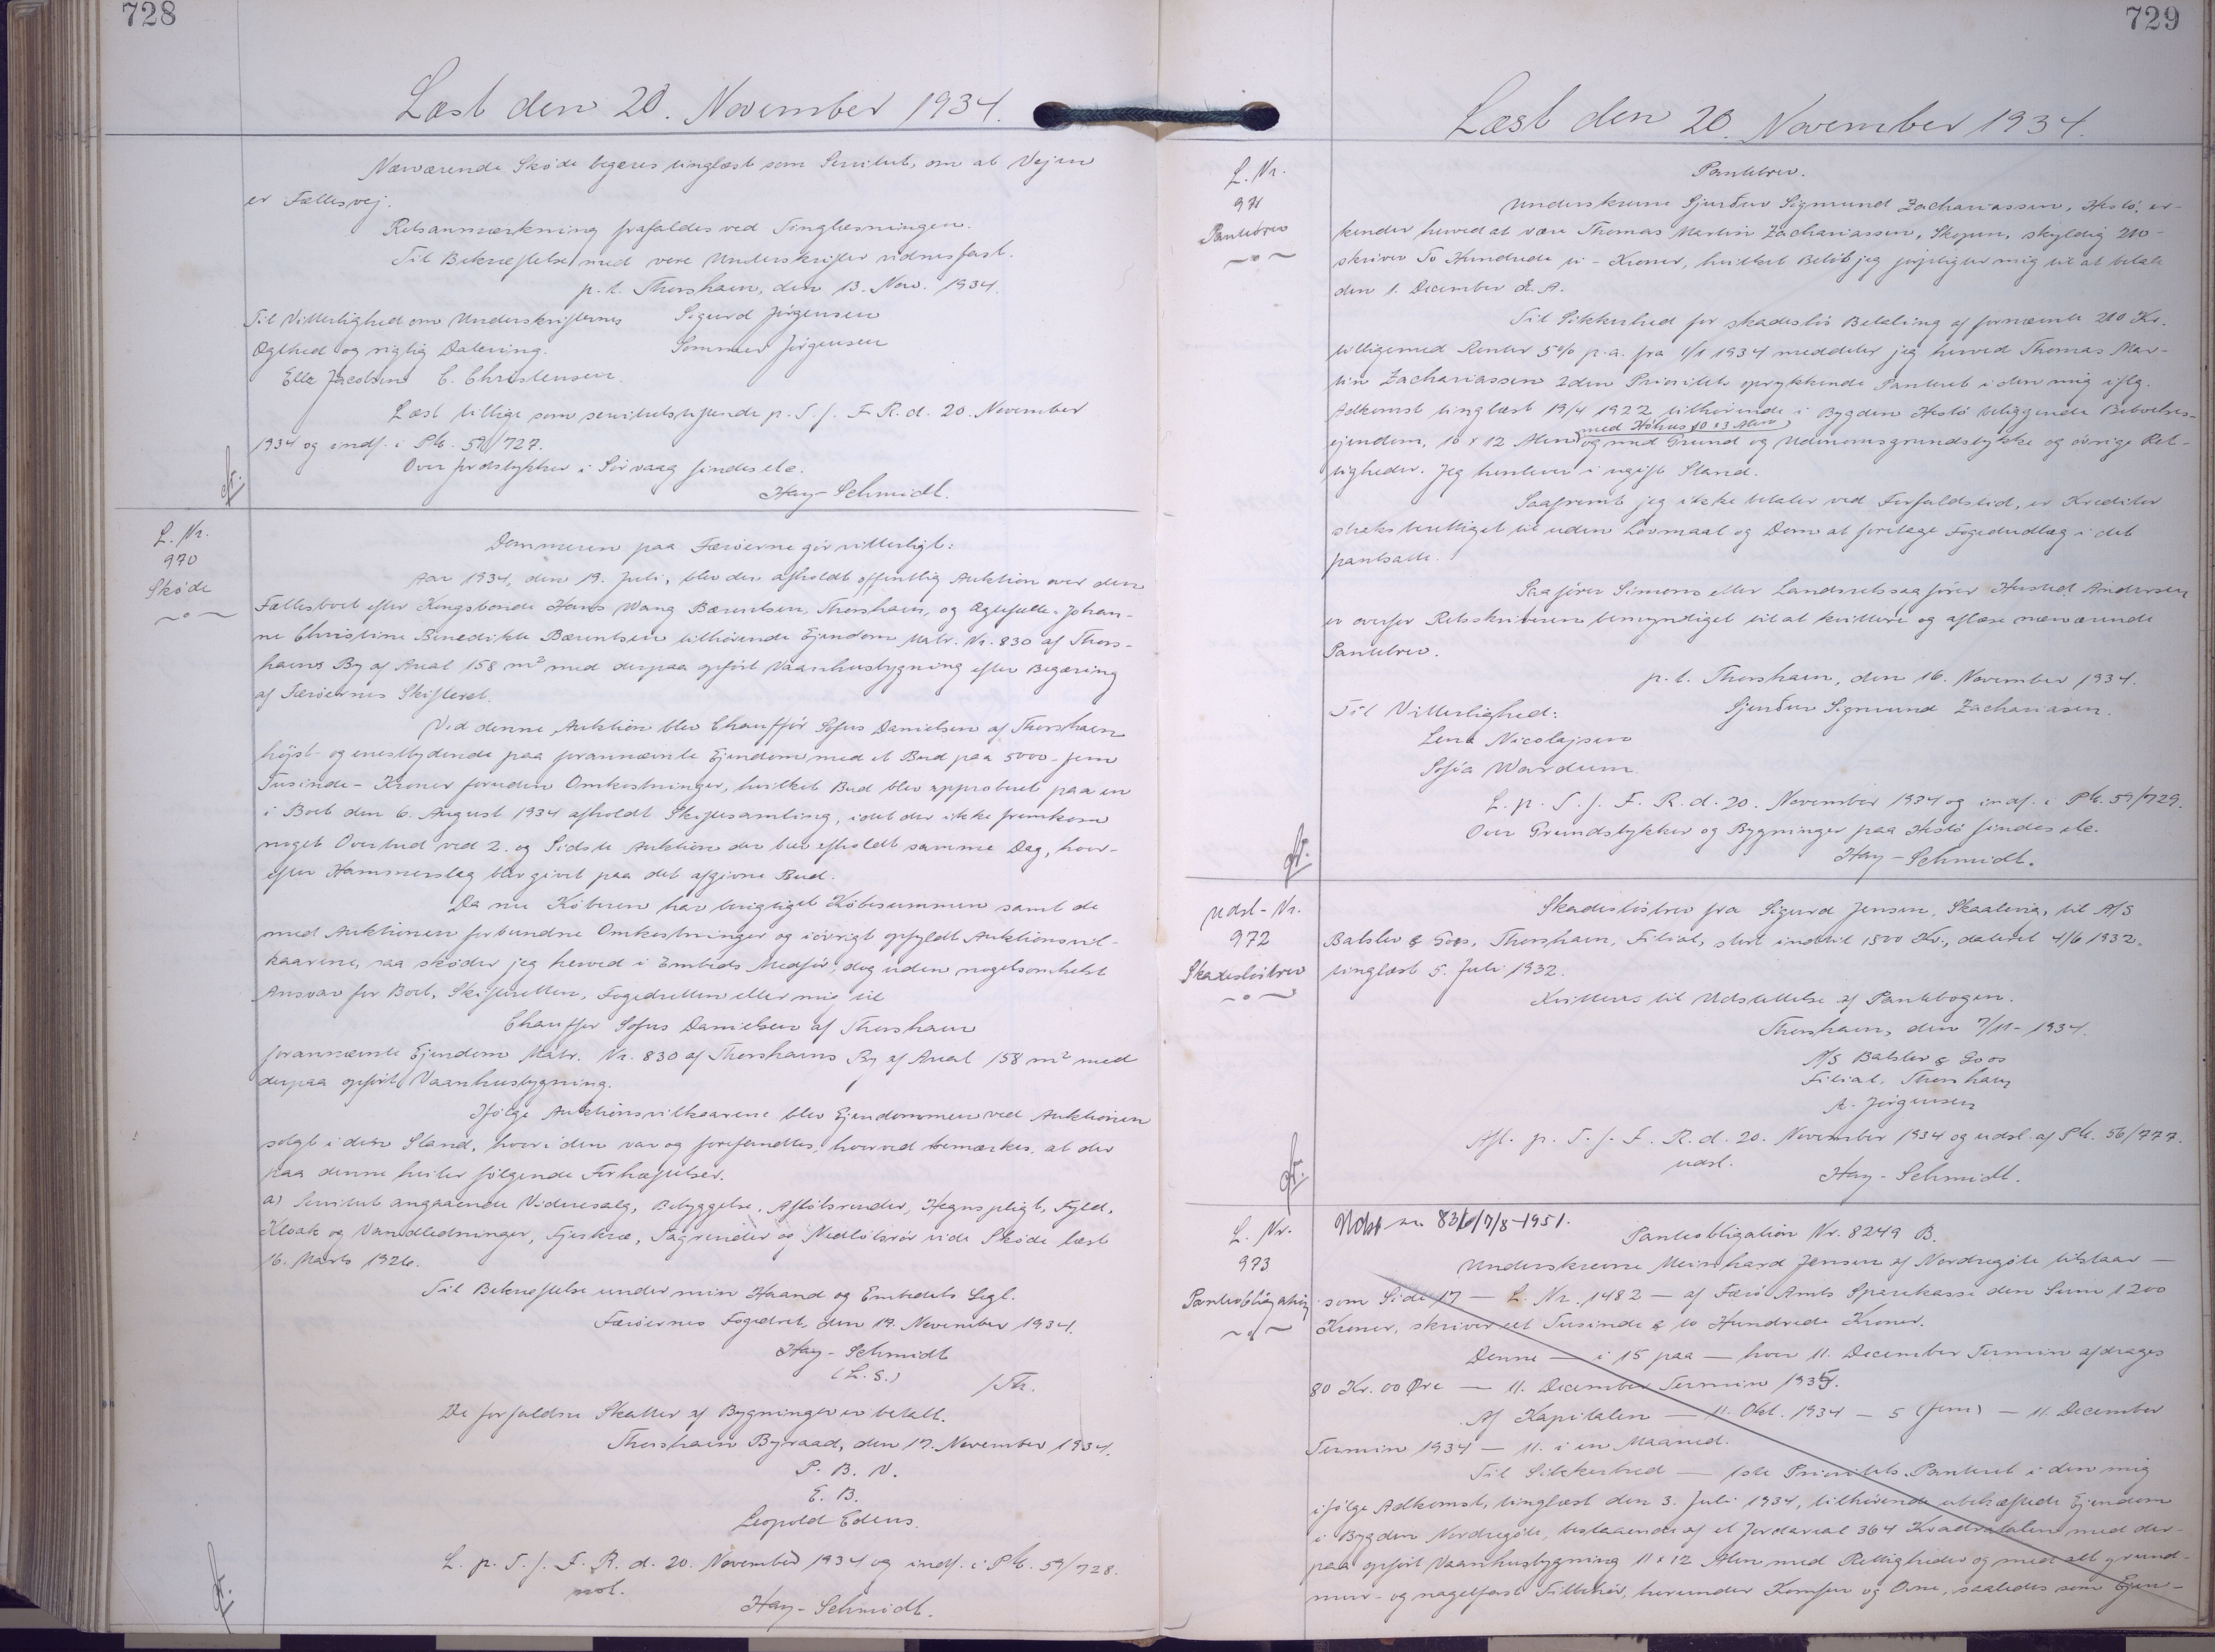 728
Læst den 20. November 1934.
Nærværende Skøde begæres tinglæst som Servitut, om at Vejen
er Fællesvej.
Retsanmærkning frafaldes ved Tinglæsningen.
Til Bekræftelse med vore Underskrifter vidnesfast.
p. t. Thorshavn, den 13. Nov. 1934.
Til Vitterlighed om Underskrifternes Sigurd Jørgensen
Ægthed og rigtig Datering. Sommer Jørgensen
Ella Jacobsen C. Christensen.
Læst tillige som servitutstiftende p. T. f. F. R. d. 20. November
1934 og indf. i Ptb. 59/727.
Over Jordstykker i Sørvaag findes etc.
Hay-Schmidt.
L. Nr.
970
Skøde
Dommeren paa Færøerne gør vitterligt:
Aar 1934, den 19. Juli, blev der afholdt offentlig Auktion over den
Fællesboet efter Kongsbonde Hans Wang Bærentsen, Thorshavn, og Ægtefælle Johan-
ne Christine Benedikte Bærentsen tilhørende Ejendom Matr. Nr. 830 af Thors-
havns By af Areal 158 m² med derpaa opført Vaanhusbygning efter Begæring
af Færøernes Skifteret.
Ved denne Auktion blev Chauffør Sofus Danielsen af Thorshavn
højst- og enestbydende paa forannævnte Ejendom med et Bud paa 5000 - fem
Tusinde - Kroner foruden Omkostninger, hvilket Bud blev approberet paa en
i Boet den 6. August 1934 afholdt Skiftesamling, idet der ikke fremkom
noget Overbud ved 2. og Sidste Auktion der blev afholdt samme Dag, hvor-
efter Hammerslag blev givet paa det afgivne Bud.
Da nu Køberen har berigtiget Købesummen samt de
med Auktionen forbundne Omkostninger og iøvrigt opfyldt Auktionsvil-
kaarene, saa skøder jeg herved i Embeds Medfør, dog uden nogetsomhelst
Ansvar for Boet, Skifteretten, Fogedretten eller mig til
Chauffør Sofus Danielsen af Thorshavn
forannævnte Ejendom Matr. Nr. 830 af Thorshavns By af Areal 158 m² med
derpaa opført Vaanhusbygning.
Ifølge Auktionsvilkaarene blev Ejendommen ved Auktionen
solgt i den Stand, hvori den var og forefandtes, hvorved bemærkes, at der
paa denne hviler følgende Forhæftelser.
a) Servitut angaaende Videresalg, Bebyggelse, Afløbsrender, Hegnspligt, Fyld,
Kloak og Vandledninger, Fjerkræ, Tagrender og Nedløbsrør vide Skøde læst
16. Marts 1926.
Til Bekræftelse under min Haand og Embedets Segl.
Færøernes Fogedret, den 19. November 1934.
Hay-Schmidt
(L.S.)
/Th.
De forfaldne Skatter af Bygningen er betalt.
Thorshavn Byraad, den 17. November 1934.
P. B. V.
E. B.
Leopold Edens.
L. p. T. f. F. R. d. 20. November 1934 og indf. i Ptb. 59/728.
not.
Hay-Schmidt.
729
Læst den 20. November 1934.
L. Nr.
971
Pantebrev
Pantebrev.
Underskrevne Sjurður Sigmund Zachariassen, Hestø, er-
kender herved at være Thomas Martin Zachariassen, Skopun, skyldig 210 -
skriver To Hundrede ti - Kroner, hvilket Beløb jeg forpligter mig til at betale
den 1. December d. A.
Til Sikkerhed for skadesløs Betaling af fornævnte 210 Kr.
tilligemed Renter 5% p. a. fra 1/1 1934 meddeler jeg herved Thomas Mar-
tin Zachariassen 2den Prioritets oprykkende Panteret i den mig iflg.
Adkomst tinglæst 19/4 1922 tilhørende i Bygden Hestø beliggende Beboelses-
med Høhus 10 x 3 Alen
ejendom, 10 x 12 Alen og med Grund og Udenomsgrundstykke og øvrige Ret-
tigheder. Jeg henlever i ugift Stand.
Saafremt jeg ikke betaler ved Forfaldstid, er Kreditor
straks berettiget til uden Lovmaal og Dom at foretage Fogedudlæg i det
pantsatte.
Sagfører Simons eller Landsretssagfører Husted Andersen
er overfor Retsskriveren bemyndiget til at kvittere og aflæse nærværende
Pantebrev.
p. t. Thorshavn, den 16. November 1934.
Til Vitterlighed: Sjurður Sigmund Zachariasen.
Lena Nicolajsen
Sofía Wardum
L. p. T. f. F. R. d. 20. November 1934 og indf. i Ptb. 59/729.
Over Grundstykker og Bygninger paa Hestø findes etc.
Hay-Schmidt.
Udsl-Nr.
972
Skadesløsbrev
Skadesløsbrev fra Sigurd Jensen, Skaalevig, til A/S
Balslev & Goos, Thorshavn, Filial, stort indtil 1500 Kr., dateret 4/6 1932.
tinglæst 5. Juli 1932.
Kvitteres til Udslettelse af Pantebogen.
Thorshavn, den 7/11-1934.
A/S Balslev & Goos
Filial, Thorshavn
A. Jørgensen
Afl. p. T. f. F. R. d. 20. November 1934 og udsl. af Ptb. 56/777.
udsl.
Hay-Schmidt.
L. Nr.
973
Panteobligation
Udsl
Panteobligation Nr. 8249 B.
Underskrevne Meinhard Jensen af Nordregøte tilstaar —
som Side 17 — L. Nr. 1482 — af Færø Amts Sparekasse den Sum 1200
Kroner, skriver eet Tusinde & to Hundrede Kroner.
Denne — i 15 paa — hver 11. December Termin afdrages
80 Kr. 00 Øre — 11. December Termin 1935.
Af Kapitalen — 11. Okt. 1934 — 5 (fem) — 11. December
Termin 1934 — 11. i en Maaned.
Til Sikkerhed — 1ste Prioritets Panteret i den mig
ifølge Adkomst, tinglæst den 3. Juli 1934, tilhørende ubehæftede Ejendom
i Bygden Nordregøte, bestaaende af et Jordareal 364 Kvadratalen med der-
paa opført Vaanhusbygning 11 x 12 Alen med Rettigheder og med alt grund-
mur- og nagelfast Tilbehør, herunder Komfur og Ovne, saaledes som Ejen-